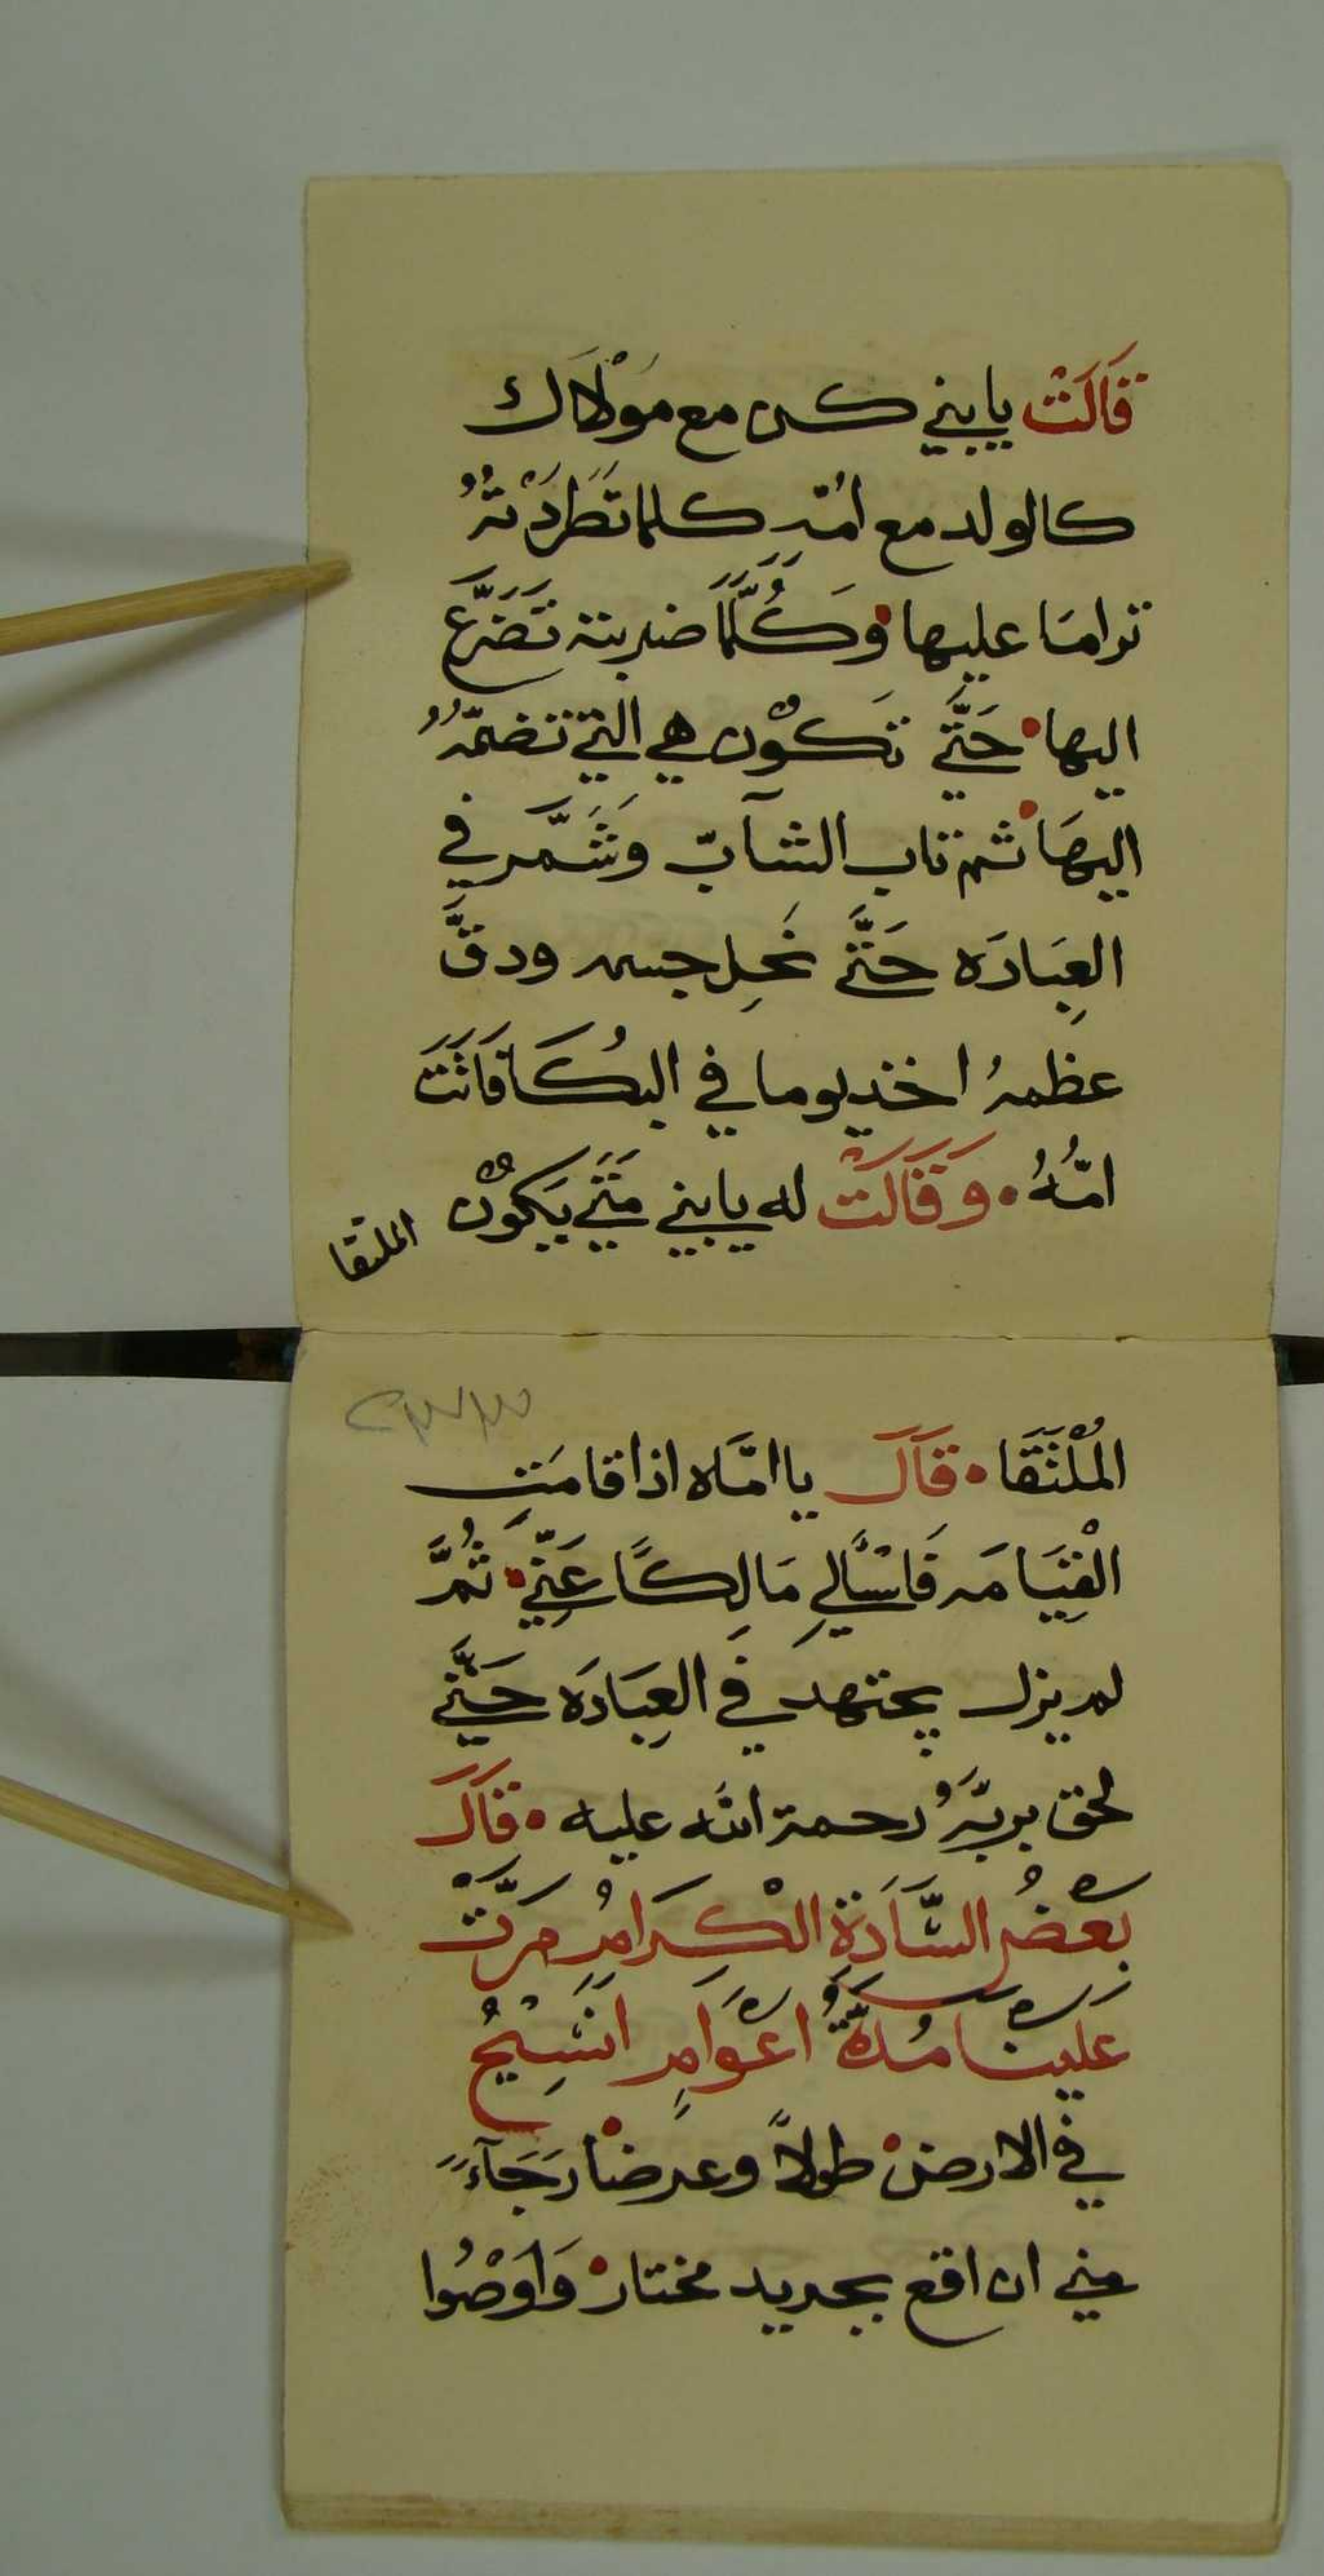 قَالَتْ يا بني كن مع مَوْلَاك
كالولد مع امّهِ كلما تَطَرَدَتْهُ
ترامَا عليها وَكُلَّمَا ضربته تَضَرَّع
اليها حَتَّي تَكوُن هي التي تضمّهُ
اليهَا ثم تاب الشآبّ وَشَمَّر في
العِبَادَه حَتَّي نَحِل جسمه ودقَّ
عظمهُ اخذ يوما في البُكَا فَاتَت
امّهُ وَقَالَت له يا بني مَتَي يَكوُن
الملتقا
٢٣٣
المُلْتَقَا قَالَ يا امّاه اذا قامَتِ
الْقِيَامَه فَاسْأَلِي مَالِكًا عَنِّي ثُمَّ
لم يزل يجتهد في العِبَادَه حَتَّي
لحق بربّهُ رحمة الله عليه قَالَ
بَعْضُ السَّادَةِ الْكِرَامِ مَرَّتْ
عَلَيْنَا مُدَّةُ اَعْوَامٍ اَسِيْحُ
في الارض طولاً وعرضا رَجَآءً
مني ان اقع بجريد مختار وَاوَصْوُا